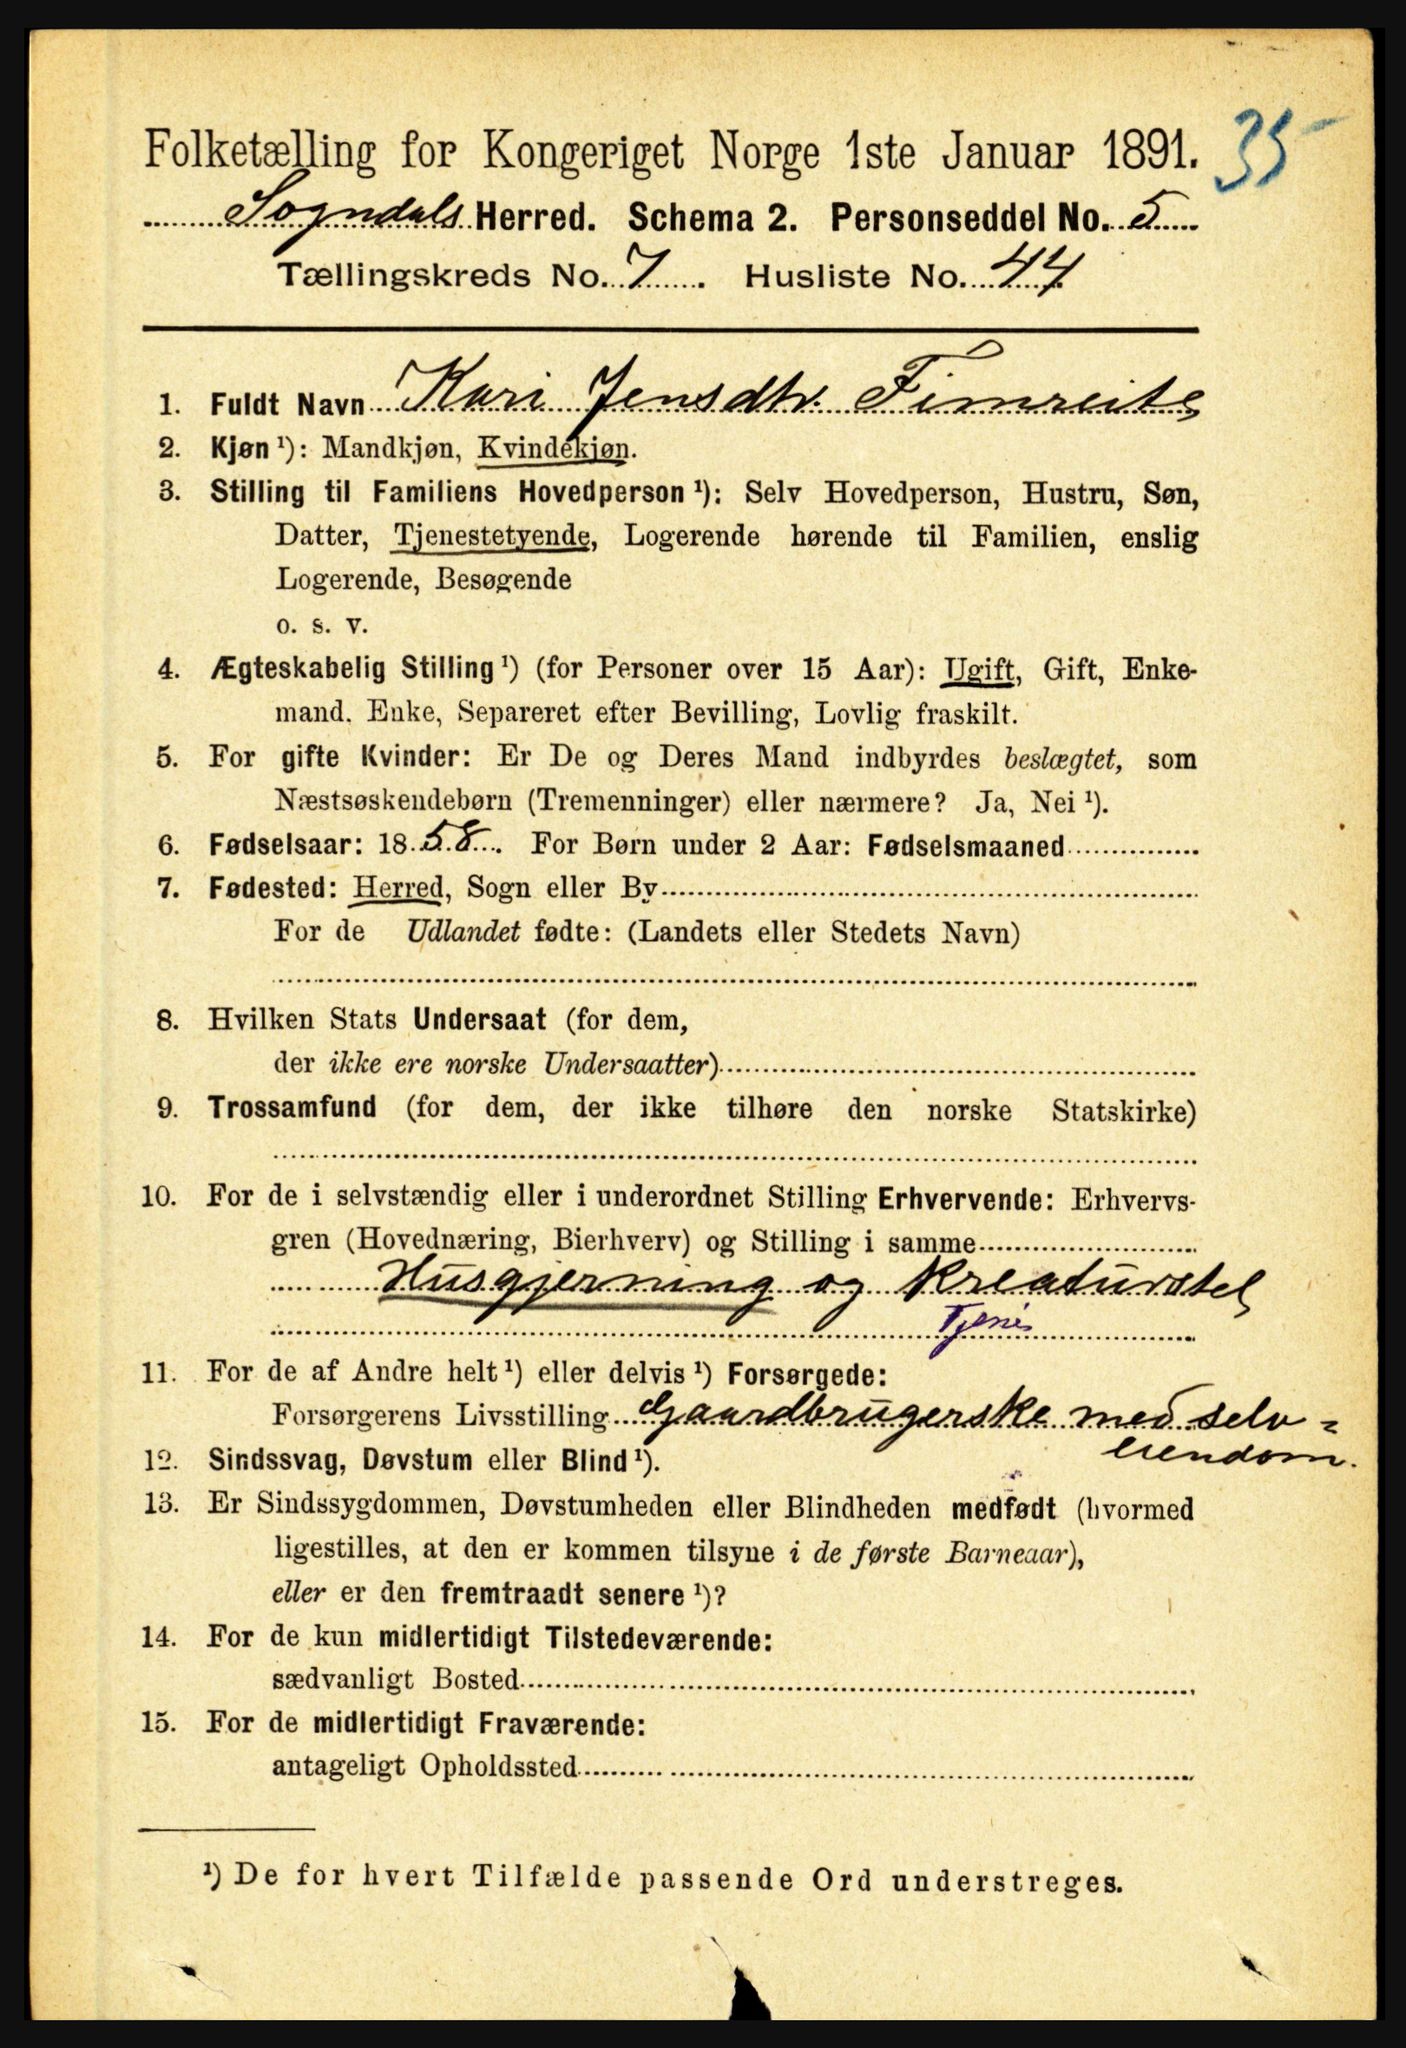 35
Folketælling for Kongeriget Norge 1ste Januar 1891.
Sogndals Herred. Schema 2. Personseddel No. 5
Tællingskreds No. 7. Husliste No. 44
1. Fuldt Navn Kari Jensdtr. Fimreite
2. Kjøn ¹): Mandkjøn, Kvindekjøn.
3. Stilling til Familiens Hovedperson ¹): Selv Hovedperson, Hustru, Søn,
Datter, Tjenestetyende, Logerende hørende til Familien, enslig
Logerende, Besøgende
o. s. v.
4. Ægteskabelig Stilling ¹) (for Personer over 15 Aar): Ugift, Gift, Enke-
mand, Enke, Separeret efter Bevilling, Lovlig fraskilt.
5. For gifte Kvinder: Er De og Deres Mand indbyrdes beslægtet, som
Næstsøskendebørn (Tremenninger) eller nærmere? Ja, Nei ¹).
6. Fødselsaar: 1858. For Børn under 2 Aar: Fødselsmaaned
7. Fødested: Herred, Sogn eller By
For de Udlandet fødte: (Landets eller Stedets Navn)
8. Hvilken Stats Undersaat (for dem,
der ikke ere norske Undersaatter)
9. Trossamfund (for dem, der ikke tilhøre den norske Statskirke)
10. For de i selvstændig eller i underordnet Stilling Erhvervende: Erhvervs-
gren (Hovednæring, Bierhverv) og Stilling i samme
Husgjerning og Kreaturstel
Tjenis
11. For de af Andre helt ¹) eller delvis ¹) Forsørgede:
Forsørgerens Livsstilling Gaardbrugerske med selv=
eiendom.
12. Sindssvag, Døvstum eller Blind ¹).
13. Er Sindssygdommen, Døvstumheden eller Blindheden medfødt (hvormed
ligestilles, at den er kommen tilsyne i de første Barneaar),
eller er den fremtraadt senere ¹)?
14. For de kun midlertidigt Tilstedeværende:
sædvanligt Bosted
15. For de midlertidigt Fraværende:
antageligt Opholdssted
¹) De for hvert Tilfælde passende Ord understreges.